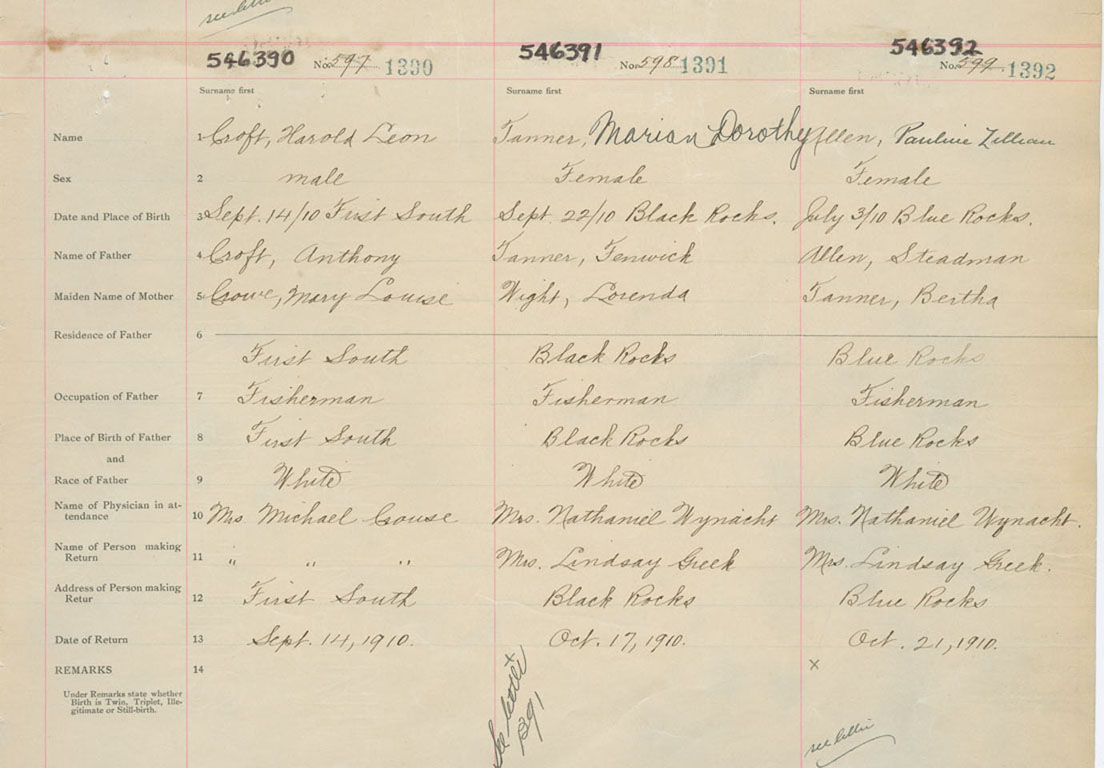 see letter
546390 546391 546392
No. 597 1390 No. 598 1391 No. 599 1392
Surname first Surname first Surname first
Name 1 Croft, Harold Leon Tanner, Marian Dorothy Allen, Pauline Lillian
Sex 2 male Female Female
Date and Place of Birth 3 Sept. 14/10 First South Sept 22/10 Black Rocks. July 3/10 Blue Rocks.
Name of Father 4 Croft, Anthony Tanner, Fenwick Allen, Steadman
Maiden Name of Mother 5 Mary Louise Wight, Lorenda Tanner, Bertha
Residence of Father 6
First South Black Rocks Blue Rocks
Occupation of Father 7 Fisherman Fisherman Fisherman
Place of Birth of Father 8 First South Black Rocks Blue Rocks
and
Race of Father 9 White White White
Name of Physician in at-
tendance 10 Mrs Michael Mrs. Nathaniel Wynacht Mrs. Nathaniel Wynacht.
Name of Person making
Return 11 " " " Mrs. Lindsay Greek Mrs. Lindsay Greek.
Address of Person making
Retur 12 First South Black Rocks Blue Rocks
Date of Return 13 Sept. 14, 1910. Oct. 17, 1910. Oct. 21, 1910.
REMARKS 14 x x
Under Remarks state whether
Birth is Twin, Triplet, Ille-
gitimate or Still-birth.
See letter
1391
see letter